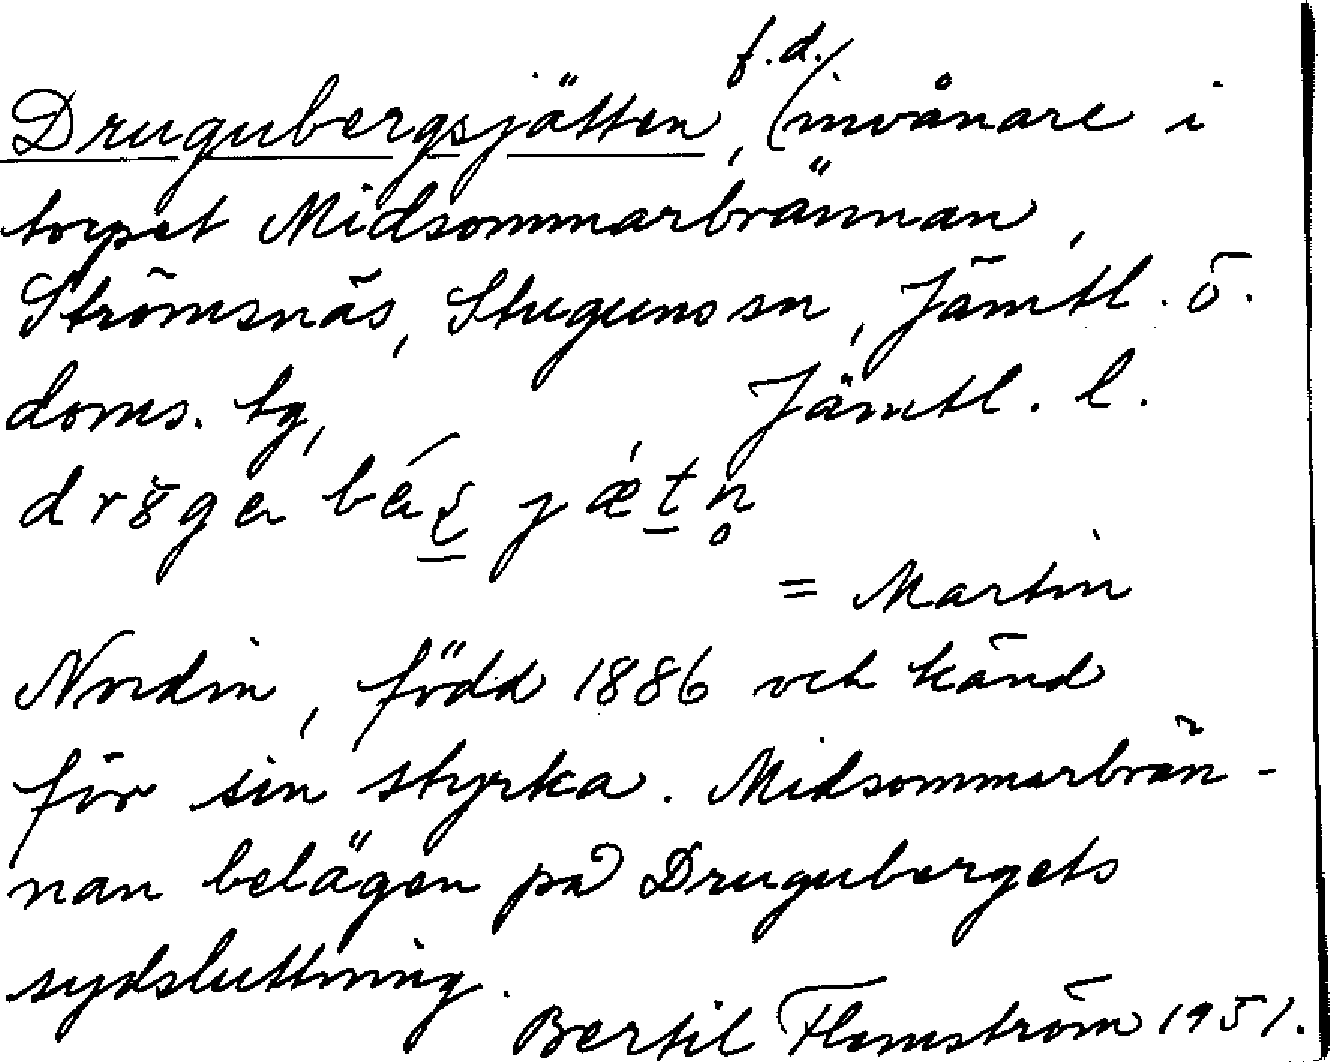 Drugubergsjätten, f.d. invånare i
torpet Midsommarbrännan,
Strömsnäs, Stuguns sn, Jämtl. ö.
doms. tg, Jämtl. l.
= Martin
Nordin, född 1886 och känd
för sin styrka. Midsommarbrän-
nan belägen på Drugubergets
sydsluttning.
Bertil Flemström 1951.